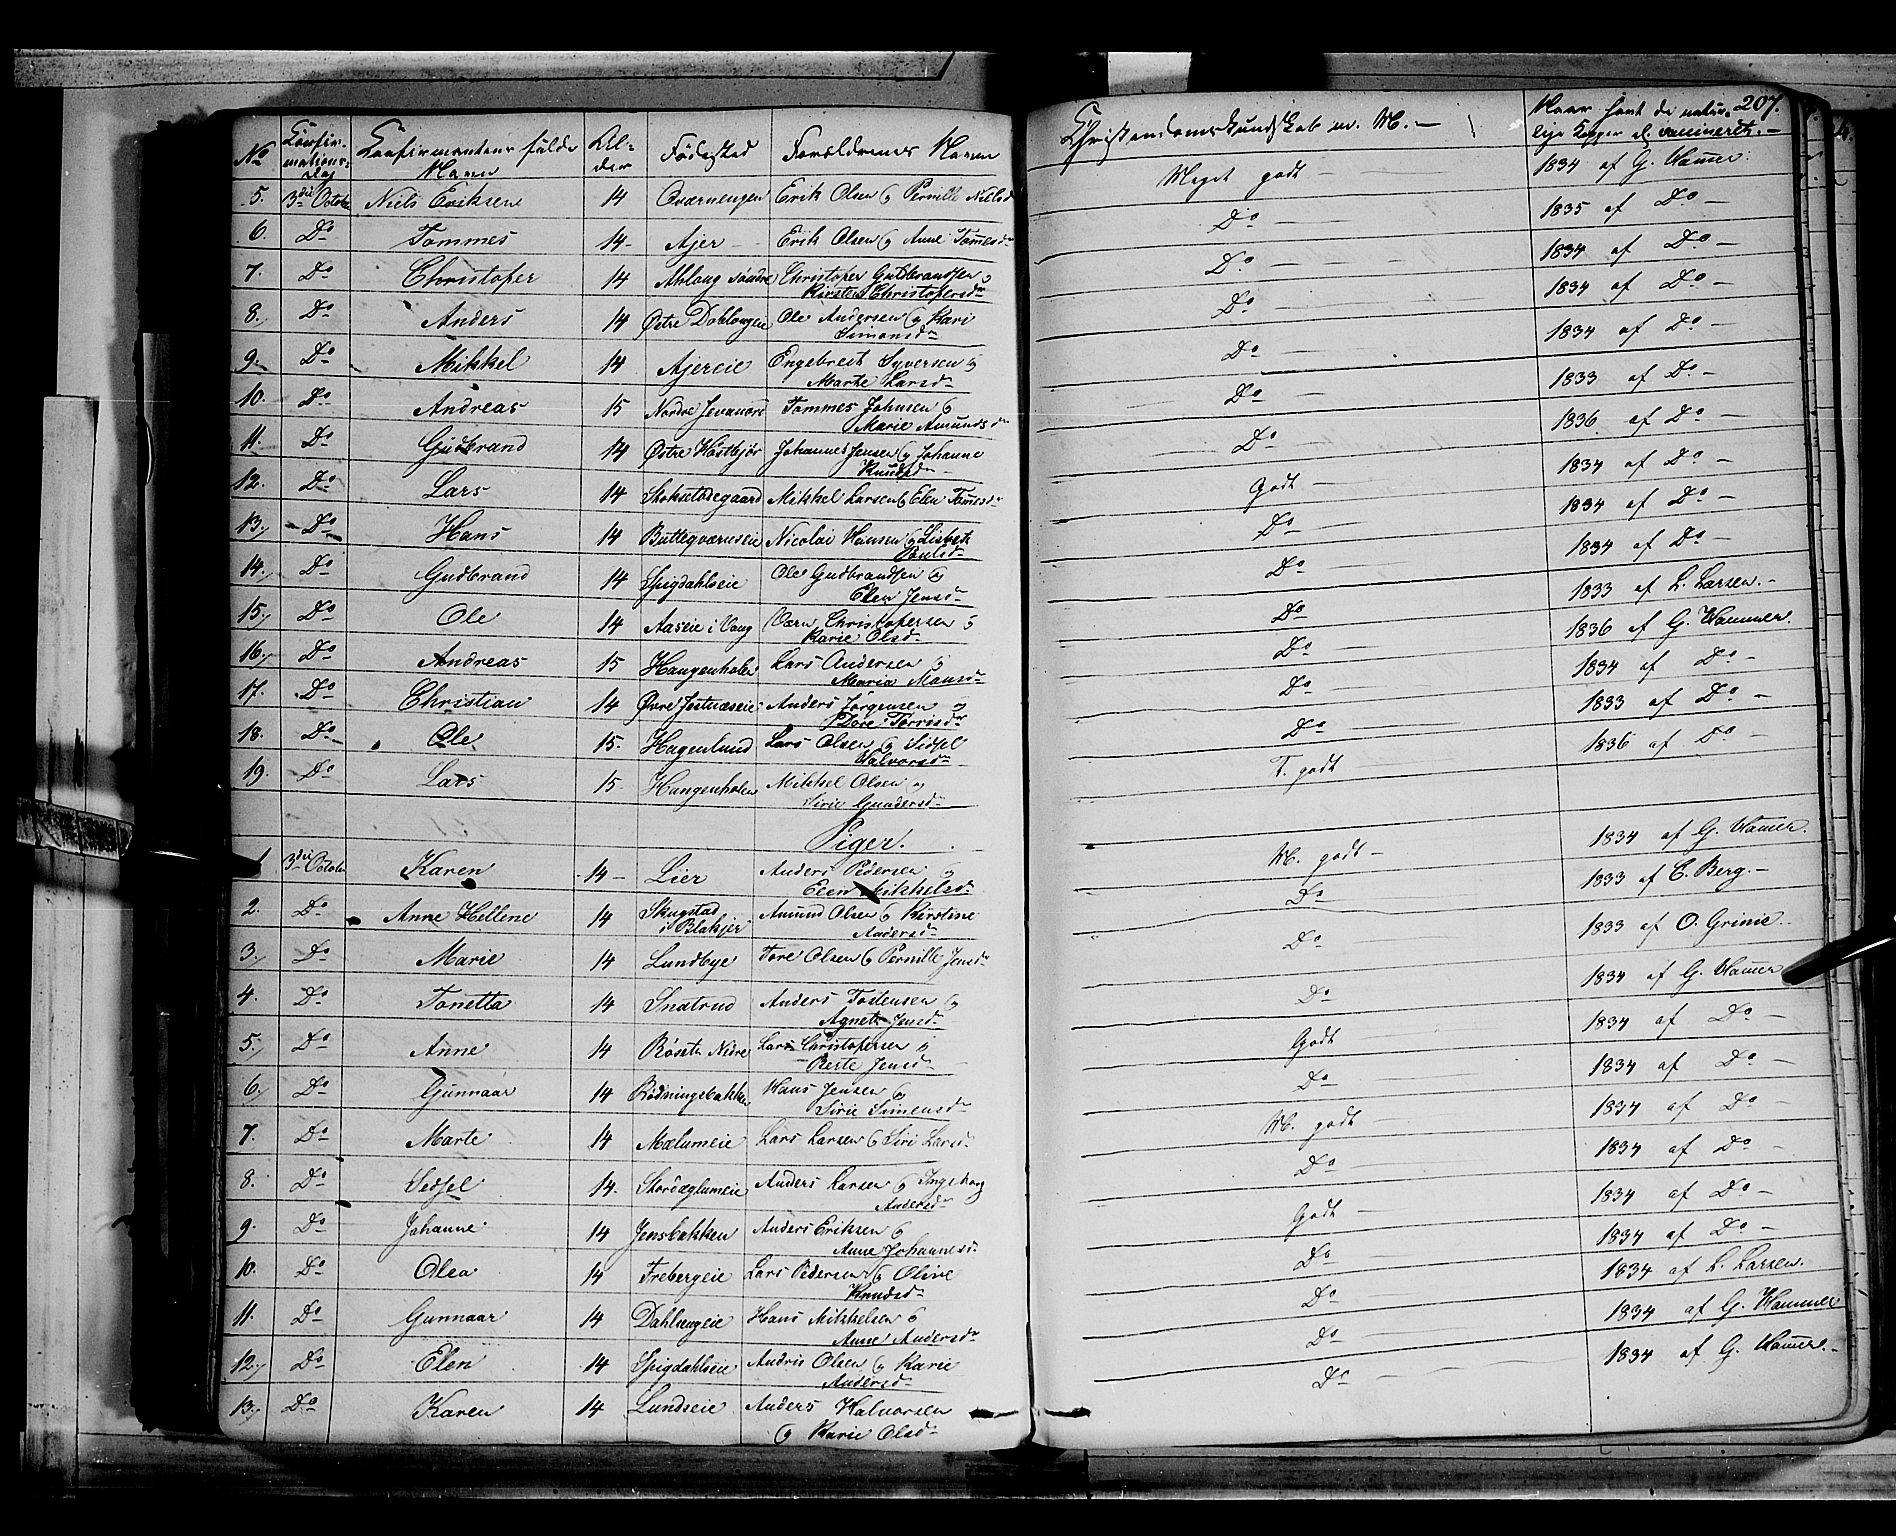 No Confir- Confirmantens fulde Al- Fødested Forældrenes Navne
mations- Navn der
dag
5. 3die Octobr Niels Eriksen 14 Qværnengen Erik Olsen og Pernille Nielsd
6. Do Tommes 14 Ajer Erik Olsen og Anne Tomesdr
7. Do Christofer 14 Ahlang søndre Christofer Guldbrandsen og
Kirsten Christofersdr
8. Do Anders 14 Østre Dahlengen Ole Andersen og Kari
Simensdr
9. Do Mikkel 14 Ajereie Engebret Syversen og
Marte Larsdr
10. Do Andreas 15 Nordre Jevanord Tommes Johnsen og
Marie Amundsdr
11. Do Gudbrand 14 Østre Høstbjør Johannes Jensen og Johanne
Knudsdr
12. Do Lars 14 Stoksetødegaard Mikkel Larsen og Elen Tomesdr
13. Do Hans 14 Butteqværnseie Nicolai Hansen og Lisbeth
Poulsdr
14. Do Gudbrand 14 Spigdahlseie Ole Gudbrandsen og
Elen Jensdr
15. Do Ole 14 Aaseie i Vang Christofersen og
Karie Olsdr
16. Do Andreas 15 Haugenholen Lars Andersen og
Maria Monsdr
17. Do Christian 14 Øvre Anders Jørgensen og
Dore Torrisdr
18. Do Ole 15. Hagenlund Lars Olsen og Sidsel
Halvorsdr
19. Do Lars 15 Haugenholen Mikkel Olsen og
Sirie Gundersdr
Piger.
1 3die Octobr Karen 14 Lier Anders Pedersen og
Elen Mikkelsdr
2. Do Anne Hellene 14 Skugstad Amund Olsen og Kirstine
i Blakjer Andersdr
3. Do Marie 14 Lundbye Tore Olsen og Pernille Jensdr
4. Do Tonetta 14 Snatrud Anders Tostensen og
Agnete Jensdr
5. Do Anne 14 Røsette Nedre Lars Christofersen og
Berte Jensdr
6. Do Gunnaar 14 Rødningsbakken Hans Jensen og
Sirie Simensdr
7. Do Marte 14 Mælumeie Lars Larsen og Siri Larsd
8. Do Sidsel 14. Stordæglumeie Anders Larsen og Ingeborg
Andersdr
9. Do Johanne 14 Jensbakken Anders Eriksen og
Anne Johannesdr
10. Do Olea 14 Frebergeie Lars Pedersen og Oline
Knudsdr
11. Do Gunnaar 14 Dahlengeie Hans Mikkelsen og
Anne Andersdr
12. Do Elen 14 Spigdahlseie Andris Olsen og Karie
Andersdr
13. Do Karen 14 Lundseie Anders Halvorsen
og Karie Olsdr
207.
Christendomskundskab m. M. Naar havt de natur-
lige Kopper el. vaccineret.
Meget godt 1834 af G. Hamer
Do 1835 af Do
Do 1834 af Do
Do 1834 af Do
Do 1834 af Do
Do 1833 af Do
Do 1836 af Do
Godt 1834 af Do
Do 1834 af Do
Do 1834 af Do
Do 1833 af L. Larsen.
Do 1836 af G. Hammer.
Do 1834 af Do
Do 1833 af Do
T. godt 1836 af Do
M. godt 1834 af G. Hamer.
Do 1833 af E. Berg.
Do 1833 af O. Grinie
Do 1834 af G. Hamer
Godt 1834 af Do
Do 1834 af Do
M. godt 1834 af Do
Do 1834 af Do
Godt 1834 af Do
Do 1834 af Do
Do 1834 af L. Larsen.
Do 1834 af G. Hammer
Do 1834 af G. Hamer.